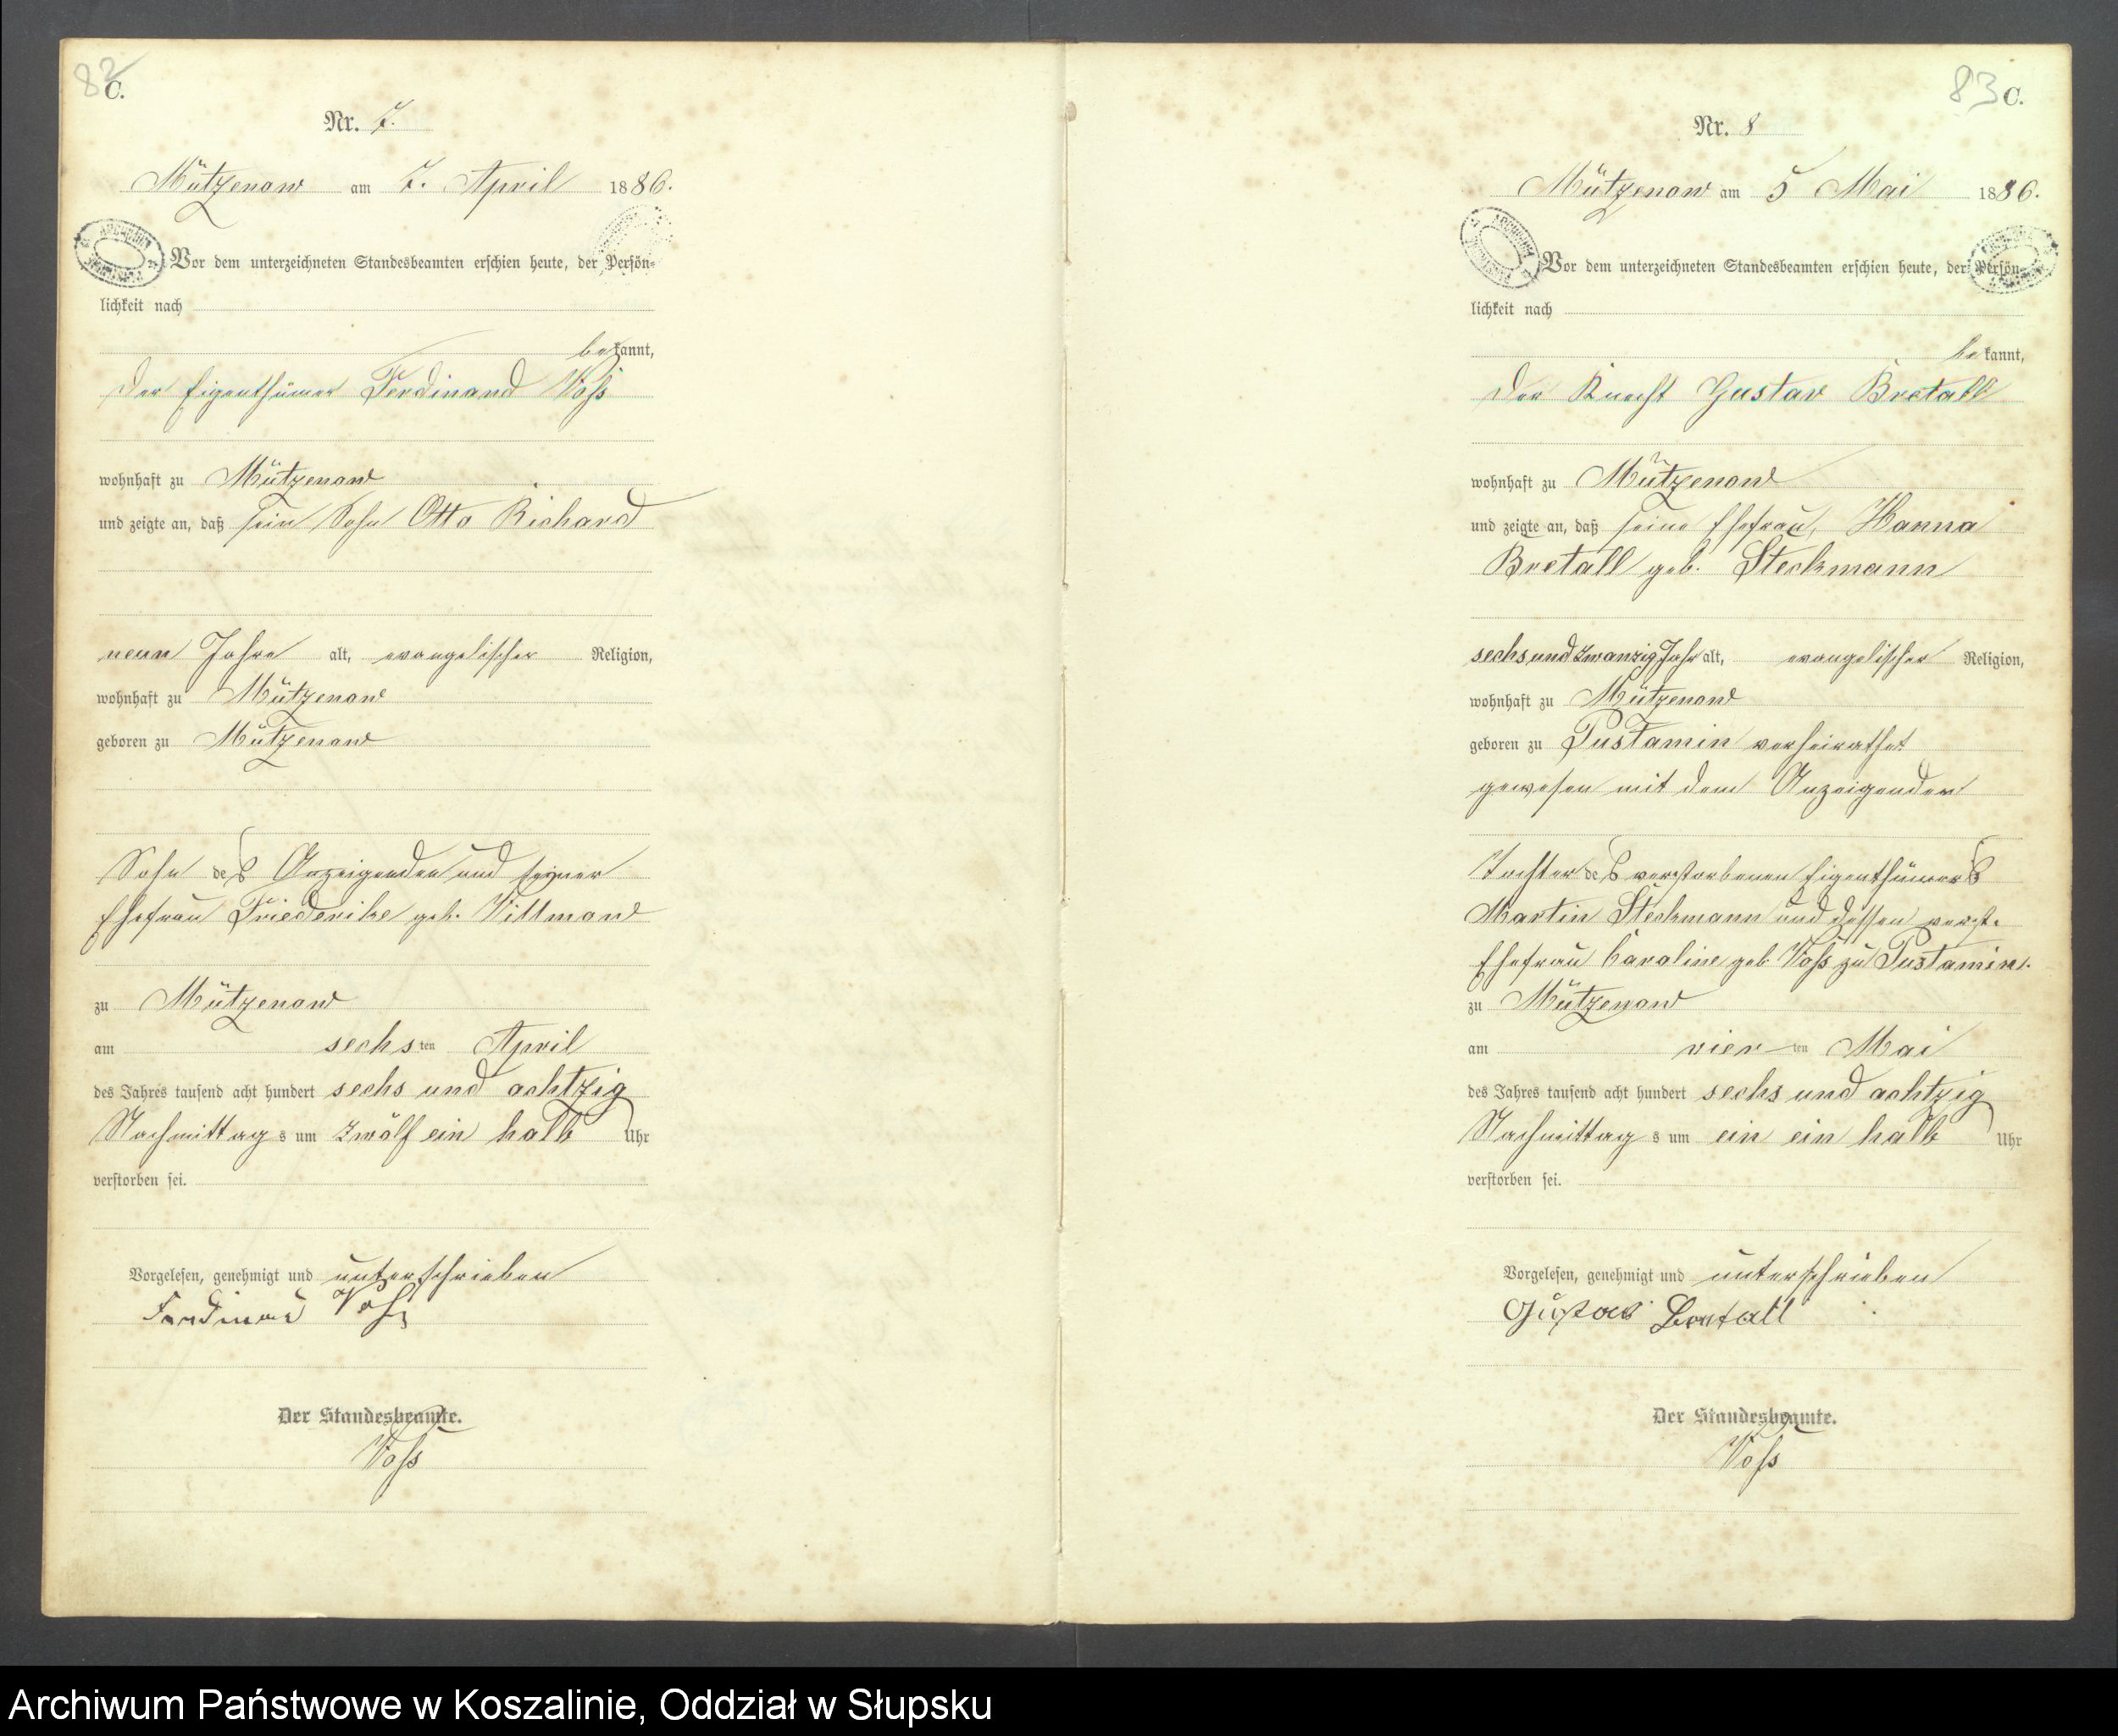 82
C.
Nr. 7.
Mützenow am 7. April 1886.
Vor dem unterzeichneten Standesbeamten erschien heute, der Persön-
lichkeit nach
bekannt,
der Eigenthümer Ferdinand Voß
wohnhaft zu Mützenow
und zeigte an, daß sein Sohn Otto Richard
neun Jahre alt, evangelischer Religion,
wohnhaft zu Mützenow
geboren zu Mützenow
Sohn des Anzeigenden und seiner
Ehefrau Friederike geb. Wittmow
zu Mützenow
am sechsten April
des Jahres tausend acht hundert sechs und achtzig
Nachmittags um zwölf ein halb Uhr
verstorben sei.
Vorgelesen, genehmigt und unterschrieben
Ferdinand Voß
Der Standesbeamte.
Voß
83 C.
Nr. 8
Mützenow am 5 Mai 1886.
Vor dem unterzeichneten Standesbeamten erschien heute, der Persön-
lichkeit nach
bekannt,
der Knecht Gustav Bretall
wohnhaft zu Mützenow
und zeigte an, daß seine Ehefrau, Hanna
Bretall geb. Steckmann
sechsundzwanzig Jahr alt, evangelischer Religion,
wohnhaft zu Mützenow
geboren zu Pustamin verheirathet
gewesen mit dem Anzeigenden
Tochter des verstorbenen Eigenthümers
Martin Steckmann und dessen verst.
Ehefrau Caroline geb Voß zu Pustamin.
zu Mützenow
am vierten Mai
des Jahres tausend acht hundert sechs und achtzig
Nachmittags um ein ein halb Uhr
verstorben sei.
Vorgelesen, genehmigt und unterschrieben
Gustav Bretall
Der Standesbeamte.
Voß
Archiwum Państwowe w Koszalinie, Oddział w Słupsku